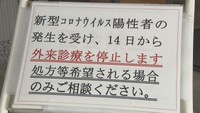 新型コロナウイルス陽性者の
発生を受け、14日から
外来診療を停止します
処方等希望される場合
のみご相談ください。